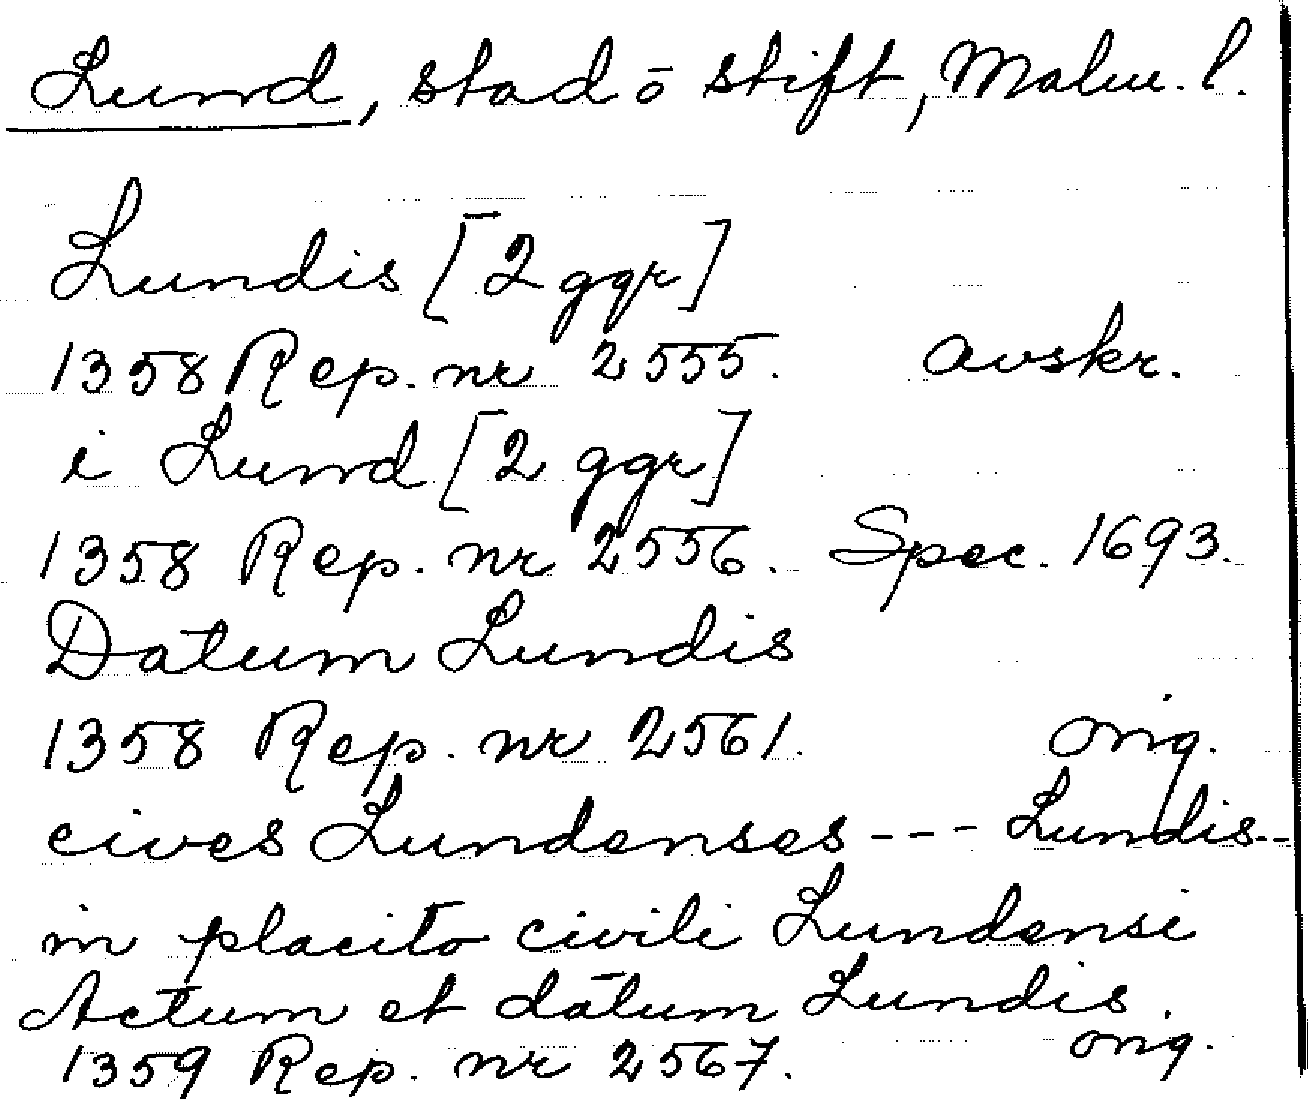 Lund, stad o stift, Malm. l.
Lundis [2 ggr]
1358 Rep. nr 2555. avskr.
i Lund [2 ggr]
1358 Rep. nr 2556. Spec. 1693.
Datum Lundis
1358 Rep. nr 2561. orig.
cives Lundenses --- Lundis--
in placito civili Lundensi
Actum et datum Lundis.
1359 Rep. nr 2567. orig.